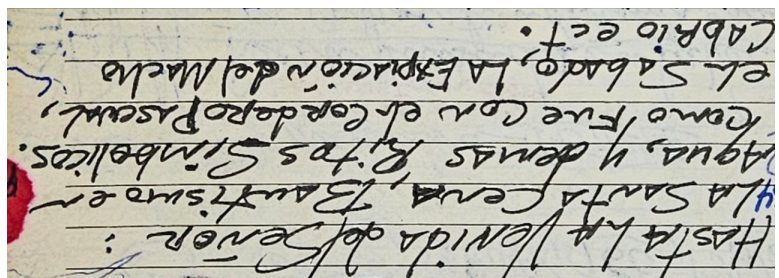 Hasta la Venida del Señor:
La Santa Cena, Bautismo en
Agua, y demas Ritos Simbolicos.
Como Fue con el Cordero Pascual,
el Sabado, La Expiación del Macho
Cabrio ect.